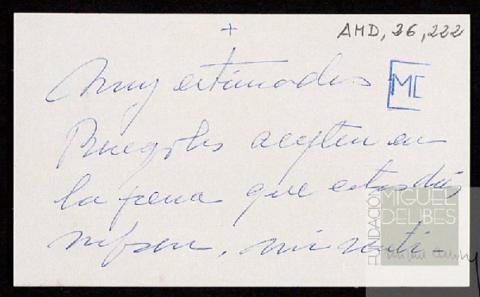 +
AMD, 36, 222
Muy estimados
MD
Ruegoles acepten en
la pena que estos días
sufren, mi senti-
FUNDACIÓN
MIGUEL
DELIBES